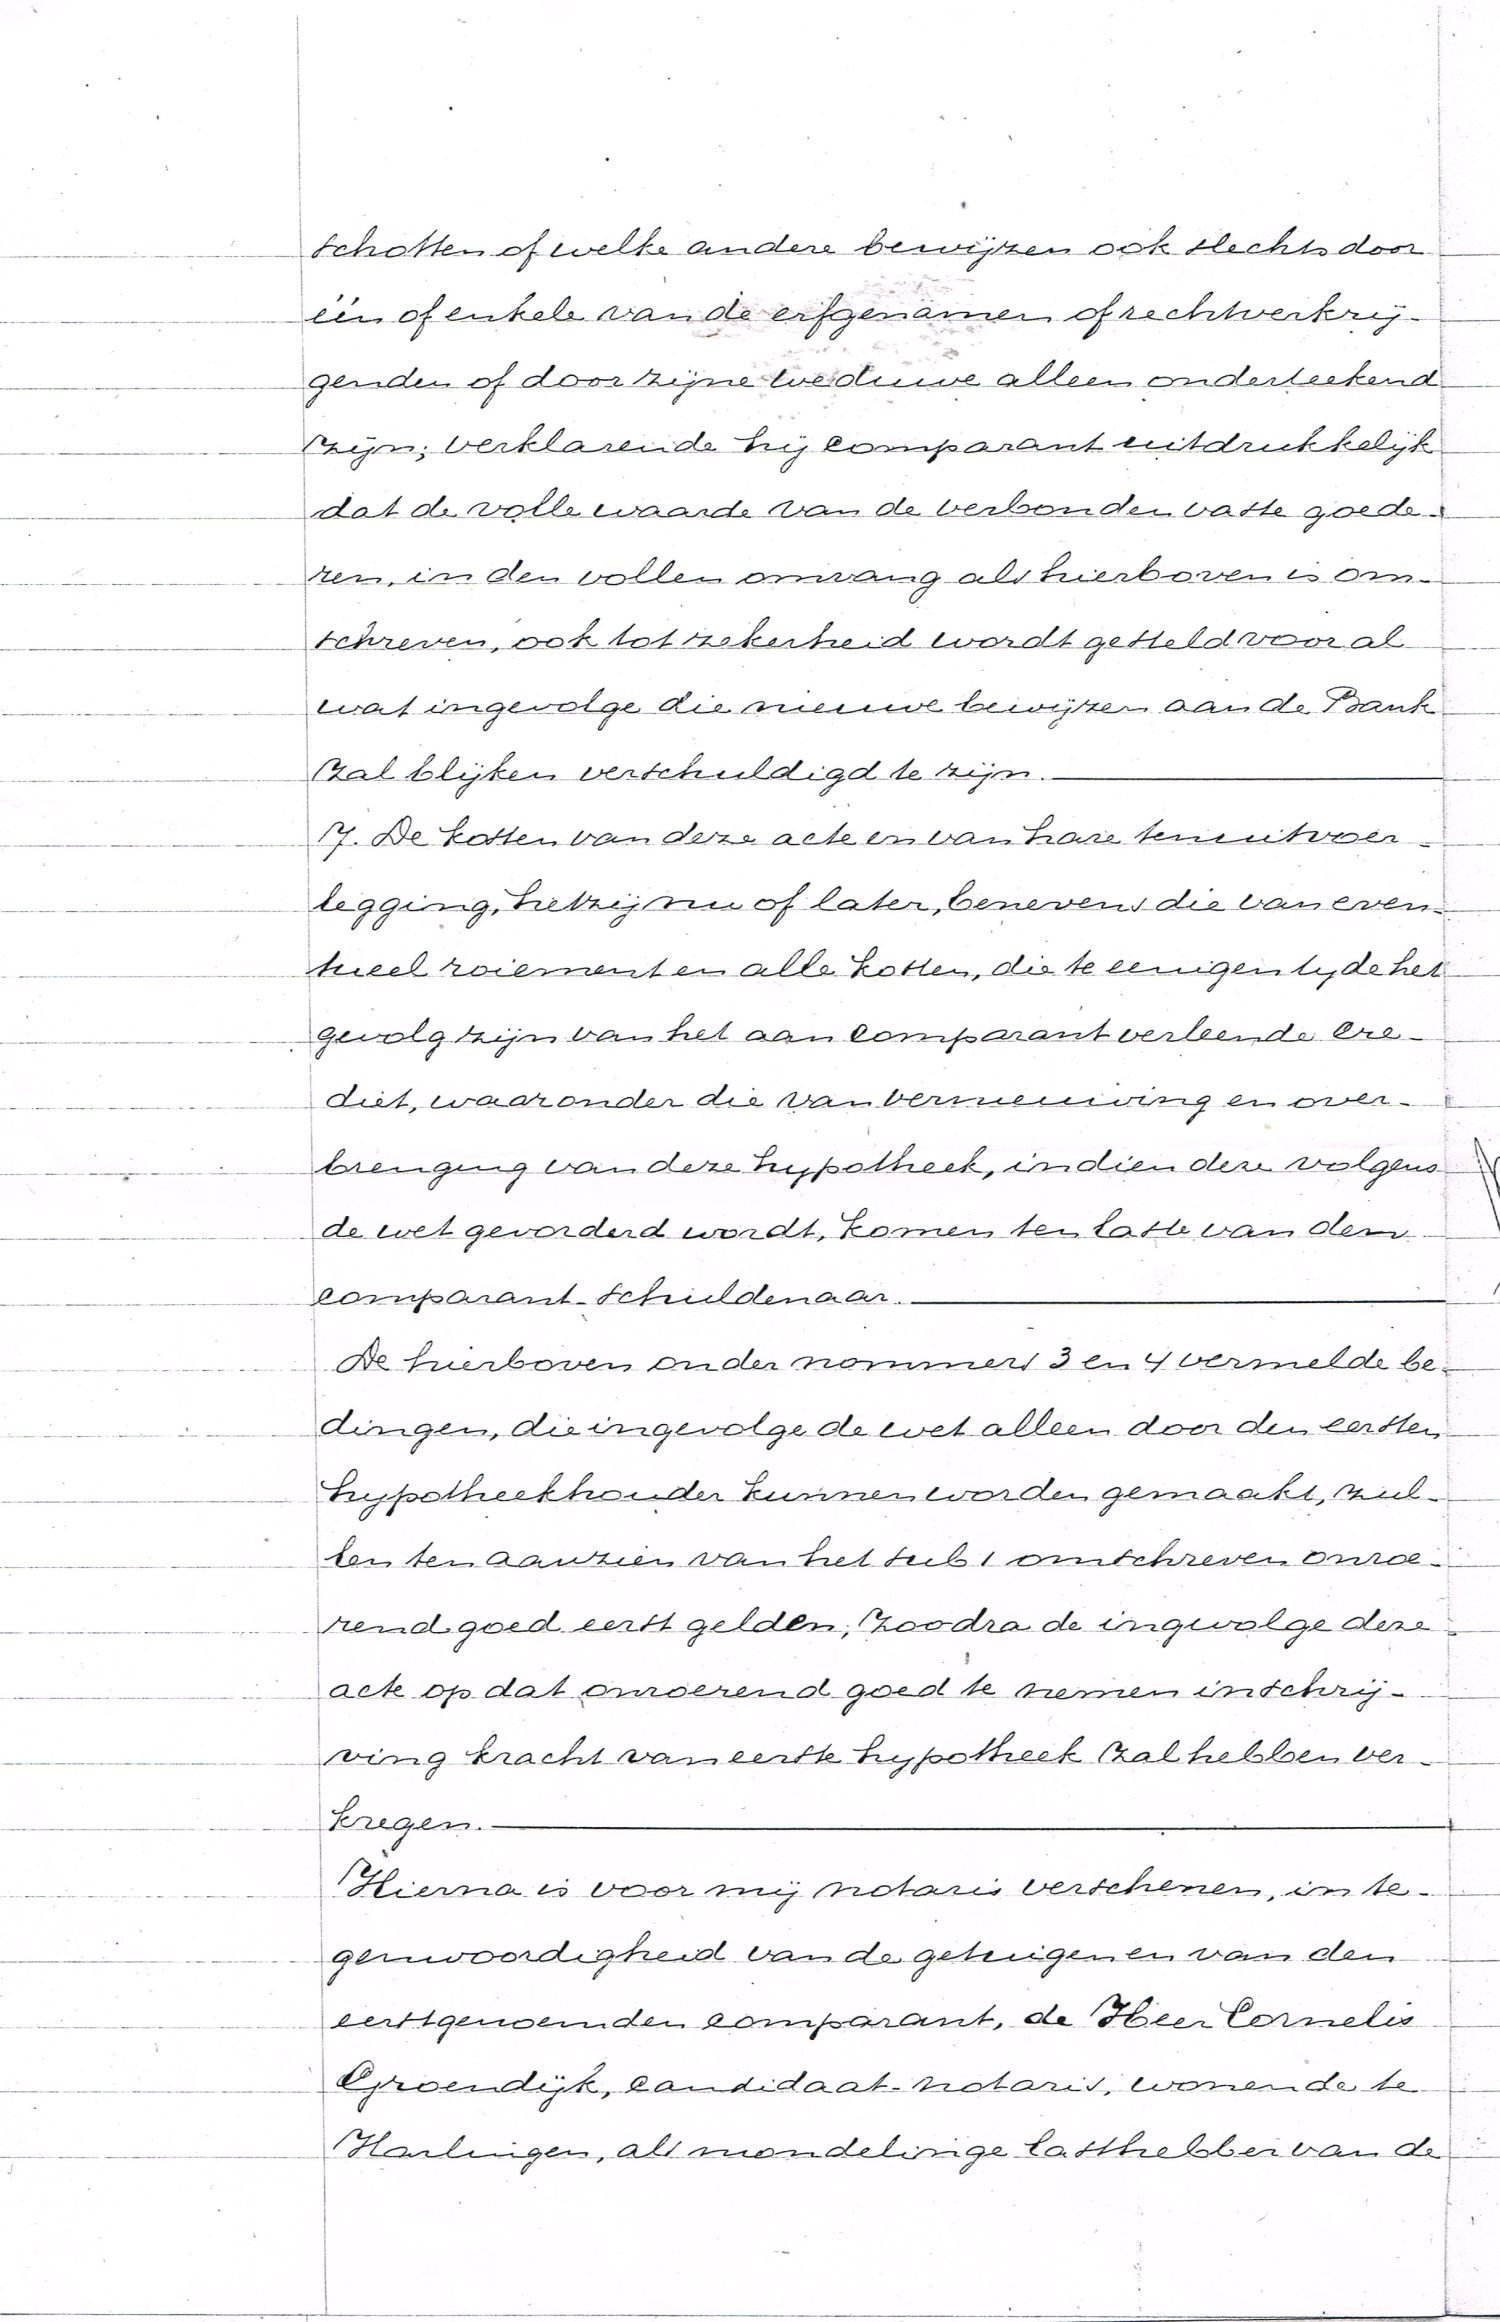 schotten of welke andere bewijzen ook slechts door
één of enkele van de erfgenamen of rechtverkrij-
genden of door zijne weduwe alleen onderteekend
zijn; verklarende hij comparant uitdrukkelijk
dat de volle waarde van de verbonden vaste goede-
ren, in den vollen omvang als hierboven is om-
schreven, ook tot zekerheid wordt gesteld voor al
wat ingevolge die nieuwe bewijzen aan de Bank
zal blijken verschuldigd te zijn.
7. De kosten van deze acte en van hare tenuitvoer-
legging, hetzij nu of later, benevens die van even-
tueel roiement en alle kosten, die te eenigen tyde het
gevolg zijn van het aan comparant verleende cre-
diet, waaronder die van vernieuwing en over-
brenging van deze hypotheek, indien deze volgens
de wet gevorderd wordt, komen ten laste van den
comparant-schuldenaar.
De hierboven onder nommers 3 en 4 vermelde be-
dingen, die ingevolge de wet alleen door den eersten
hypotheekhouder kunnen worden gemaakt, zul-
len ten aanzien van het sub 1 omschreven onroe-
rend goed eerst gelden, zoodra de ingevolge deze
acte op dat onroerend goed te nemen inschrij-
ving kracht van eerste hypotheek zal hebben ver-
kregen.
Hierna is voor mij notaris verschenen, in te-
genwoordigheid van de getuigen en van den
eerstgenoemden comparant, de Heer Cornelis
Groendijk, candidaat-notaris, wonende te
Harlingen, als mondelinge lasthebber van de